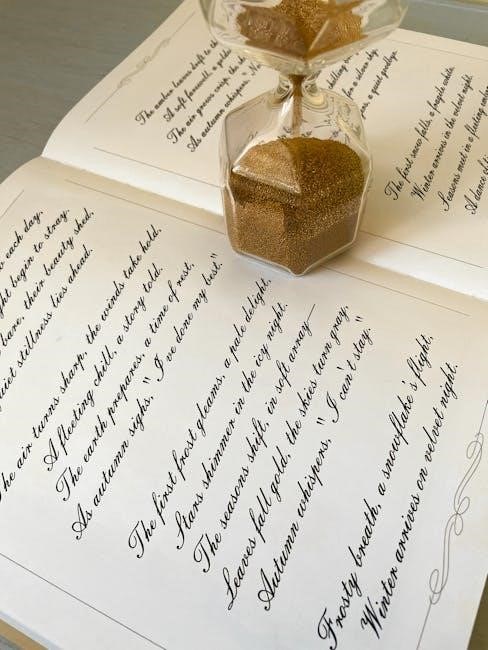 The amber leaves drift to
A soft farewell, a
The air grows crisp, the
As autumn whispers,
for a velvet sky,
a quiet goodbye.
The first snow falls, a fragile white,
Winter arrives in the velvet night.
Seasons meet in a fleeting
A dance
each day,
begin to stray.
bare, their beauty shed,
stillness lies ahead.
The air turns sharp, the winds take hold,
A fleeting chill, a story told.
The earth prepares, a time of rest,
As autumn sighs, "I've done my best."
The first frost gleams, a pale delight,
Stars shimmer in the icy night.
The seasons shift, in soft array—
Leaves fall gold, the skies turn gray,
Autumn whispers, "I can't stay."
Frosty breath, a snowflake's flight,
Winter arrives on velvet night.